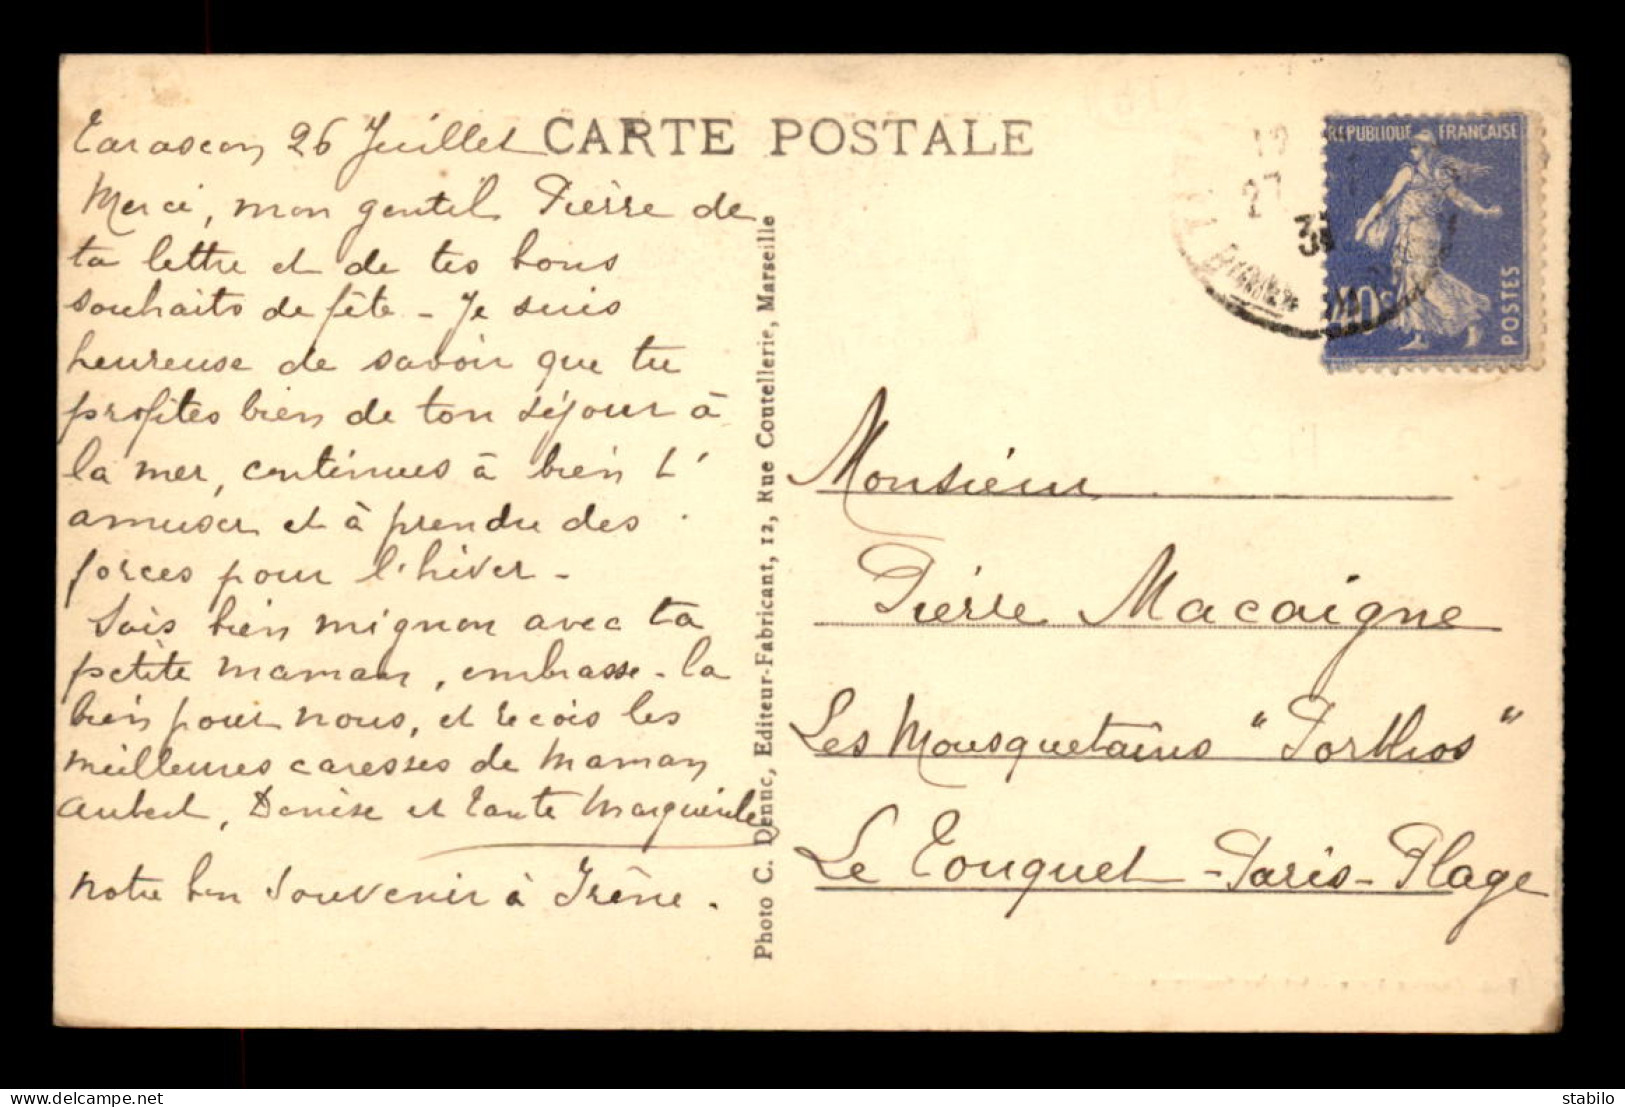 Tarascon 26 Juillet
CARTE POSTALE
Merci, mon gentil Pierre de
ta lettre et de tes bons
souhaits de fête - Je suis
heureuse de savoir que tu
profites bien de ton séjour à
la mer, continues à bien t'
amuser et à prendre des
forces pour l'hiver -
Sois bien mignon avec ta
petite maman, embrasse-la
bien pour nous, et reçois les
meilleures caresses de Maman
Aubert, Denise et Tante Marguerite
notre bon souvenir à Irène.
Photo C. Denuc, Editeur-Fabricant, 12, Rue Coutellerie, Marseille
REPUBLIQUE FRANÇAISE
40c
POSTES
27
Monsieur
Pierre Macaigne
Les Mousquetaires "Porthos"
Le Touquet-Paris-Plage
delcampe.net
stabilo